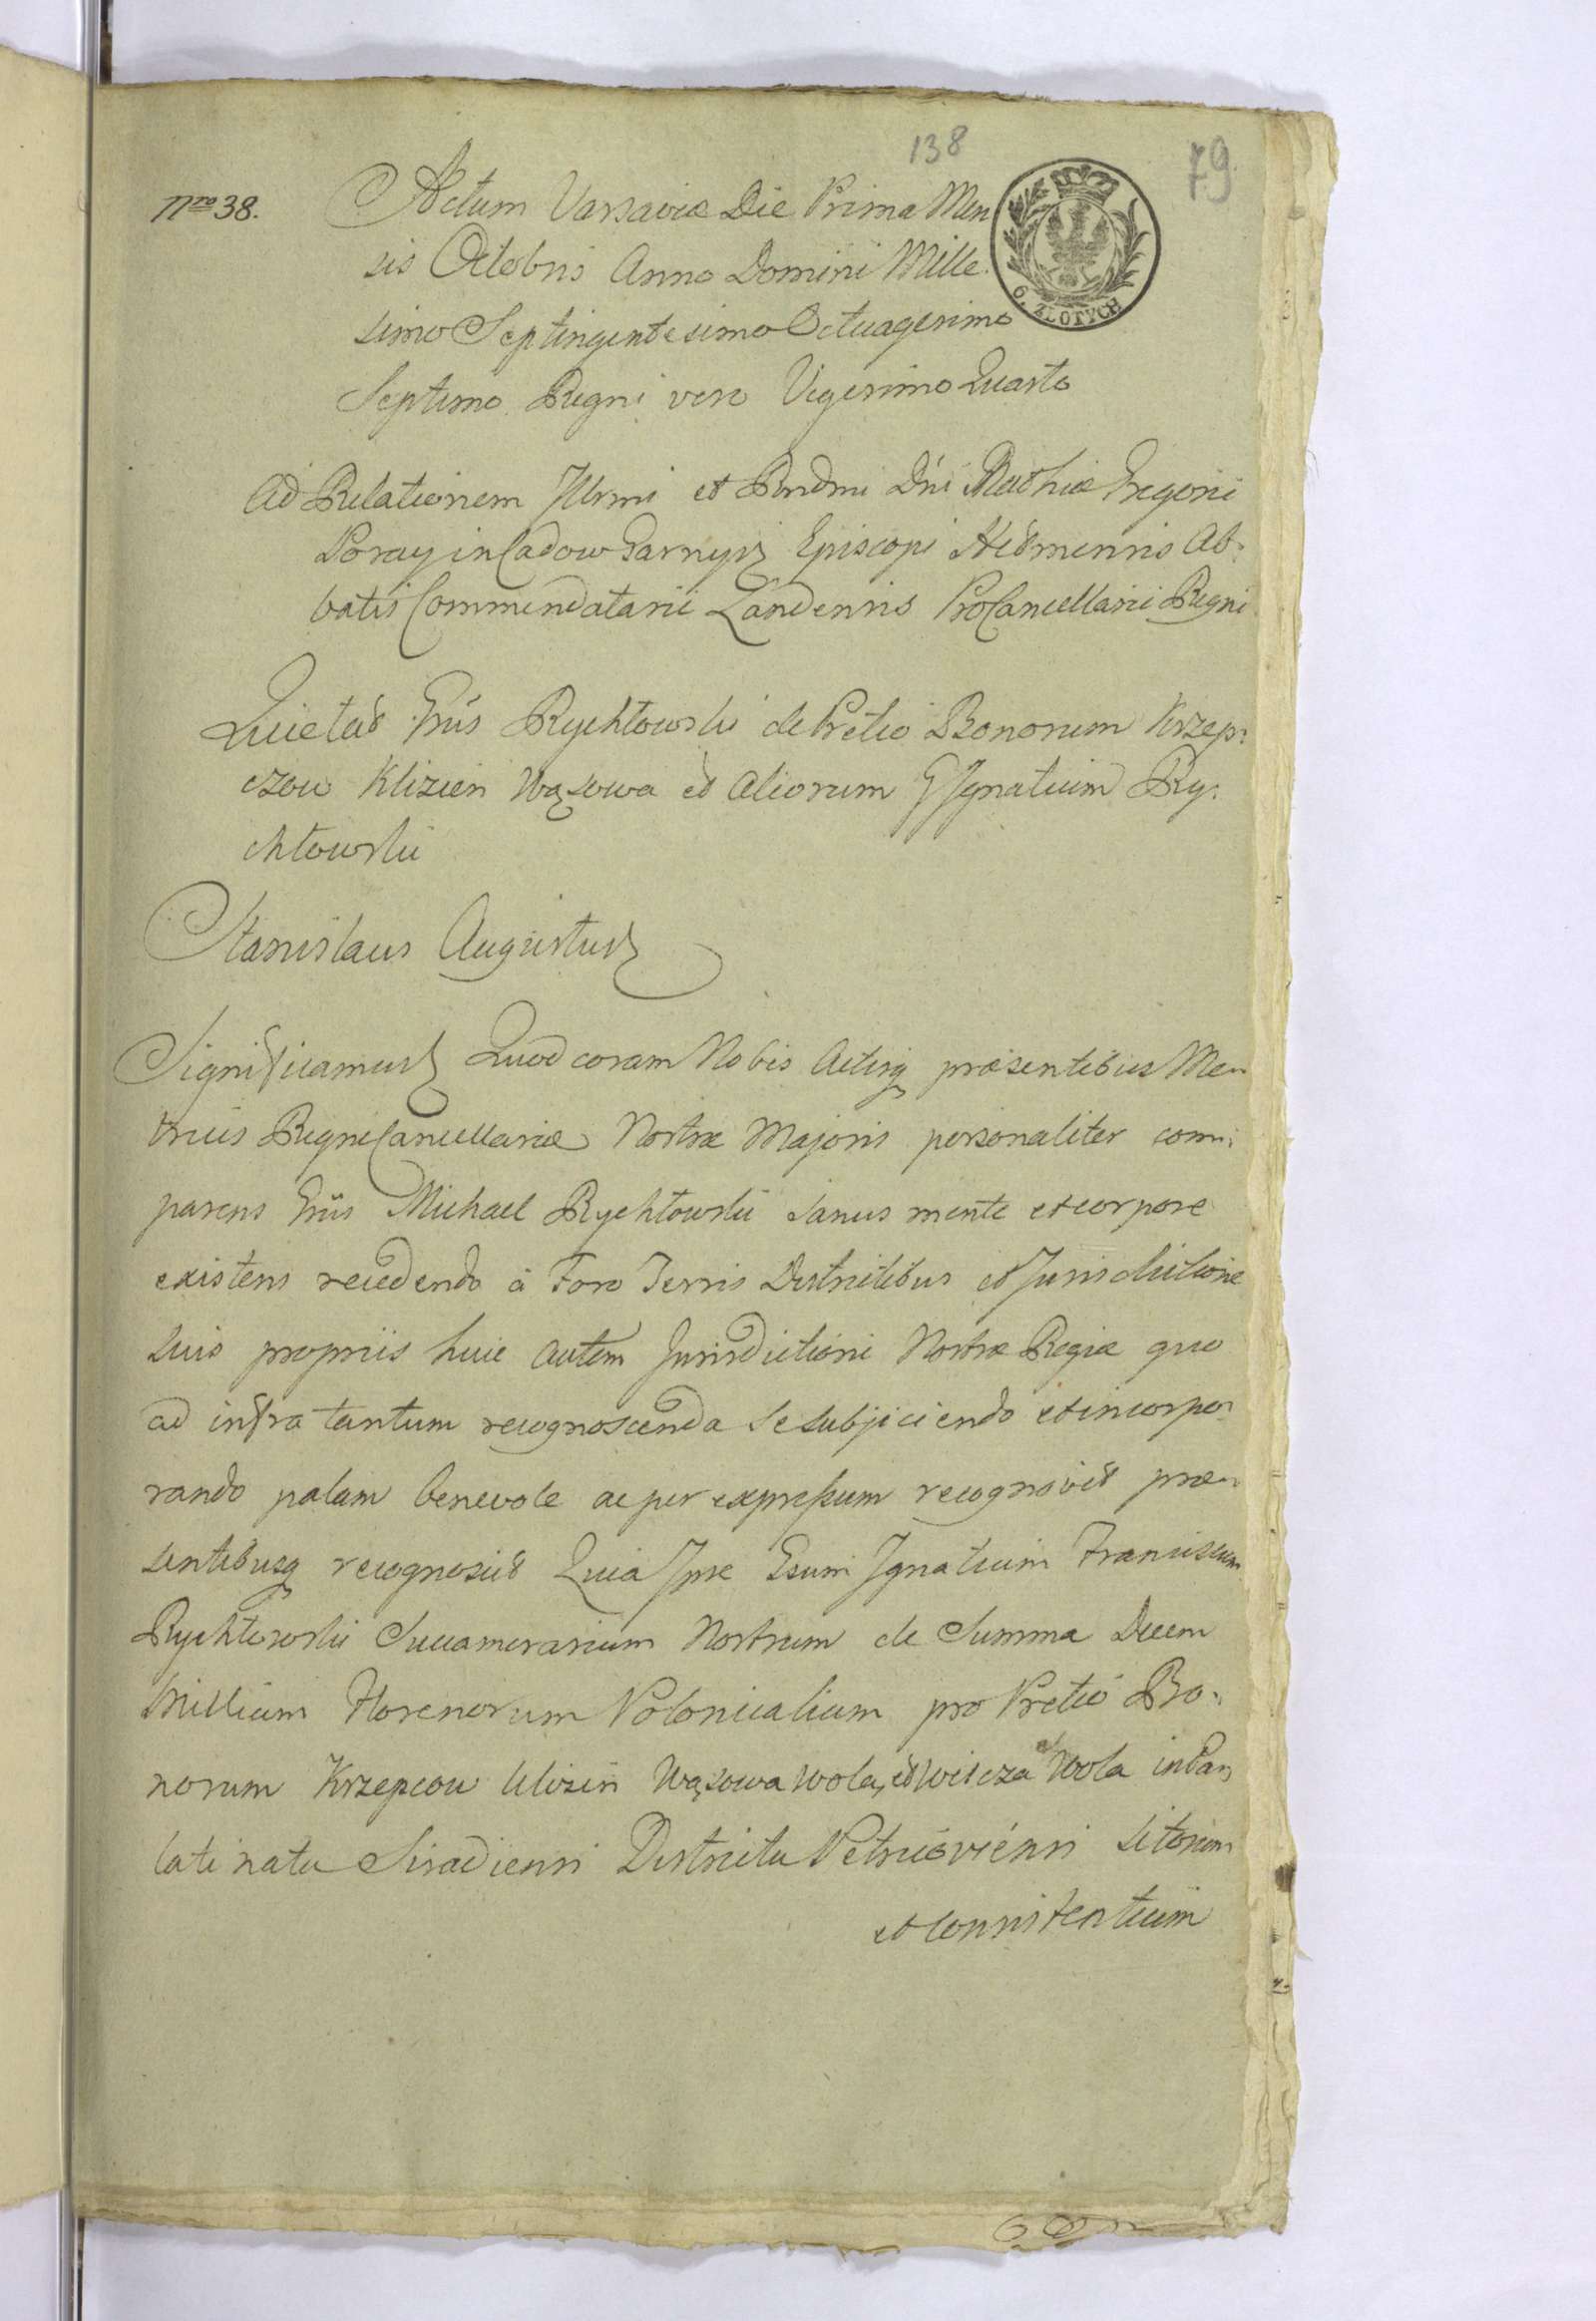 138
79
Nro 38.
Actum Varsaviæ Die Prima Men
sis Octobris Anno Domini Mille.
simo Septingentesimo Octuagesimo
Septimo Regni vero Vigesimo Quarto
6. ZŁOTYCH
Ad Relationem Illrmi et Rndmi Dni Mathiæ Gregorii
Poray in Cadow Garnysz Episcopi Helmensis Ab:
batis Commendatarii Landensis ProCancellarii Regni
Quietat Gnüs Rychłowski de Pretio Bonorum Krzep:
czow Klizien Wązowa et Aliorum G Ignatium Ry:
chłowski
Stanislaus Augustus
Significamus Quod coram Nobis Actisq præsentibus Me
tricis Regni Cancellariæ Nostræ Majoris personaliter com:
parens Gnüs Michael Rychłowski sanus mente et corpore
existens recedendo à Foro Terris Districtibus et Jurisdictione
suis propriis huic autem Jurisdictioni Nostræ Regiæ quo
ad infra tantum recognoscenda se subjiciendo et incorpo:
rando palam benevole ac per expressum recognovit præ
sentibusq recognoscit Quia Ipse Gsum Ignatium Franciscum
Rychłowski Succamerarium Nostrum de Summa Decem
Millium Florenorum Polonicalium pro Pretio Bo:
norum Krzepcow Klizin Wązowa Wola, et Wilcza Wola in Pa
latinatu Siradiensi Districtu Petricoviensi sitorum
et consistentium